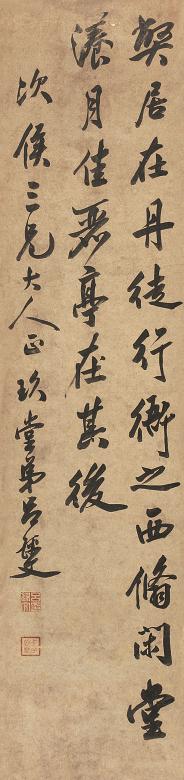 弊居在丹徒行衙之西脩閑堂
漾月佳麗亭在其後
次侯三兄大人正 玖堂弟呂